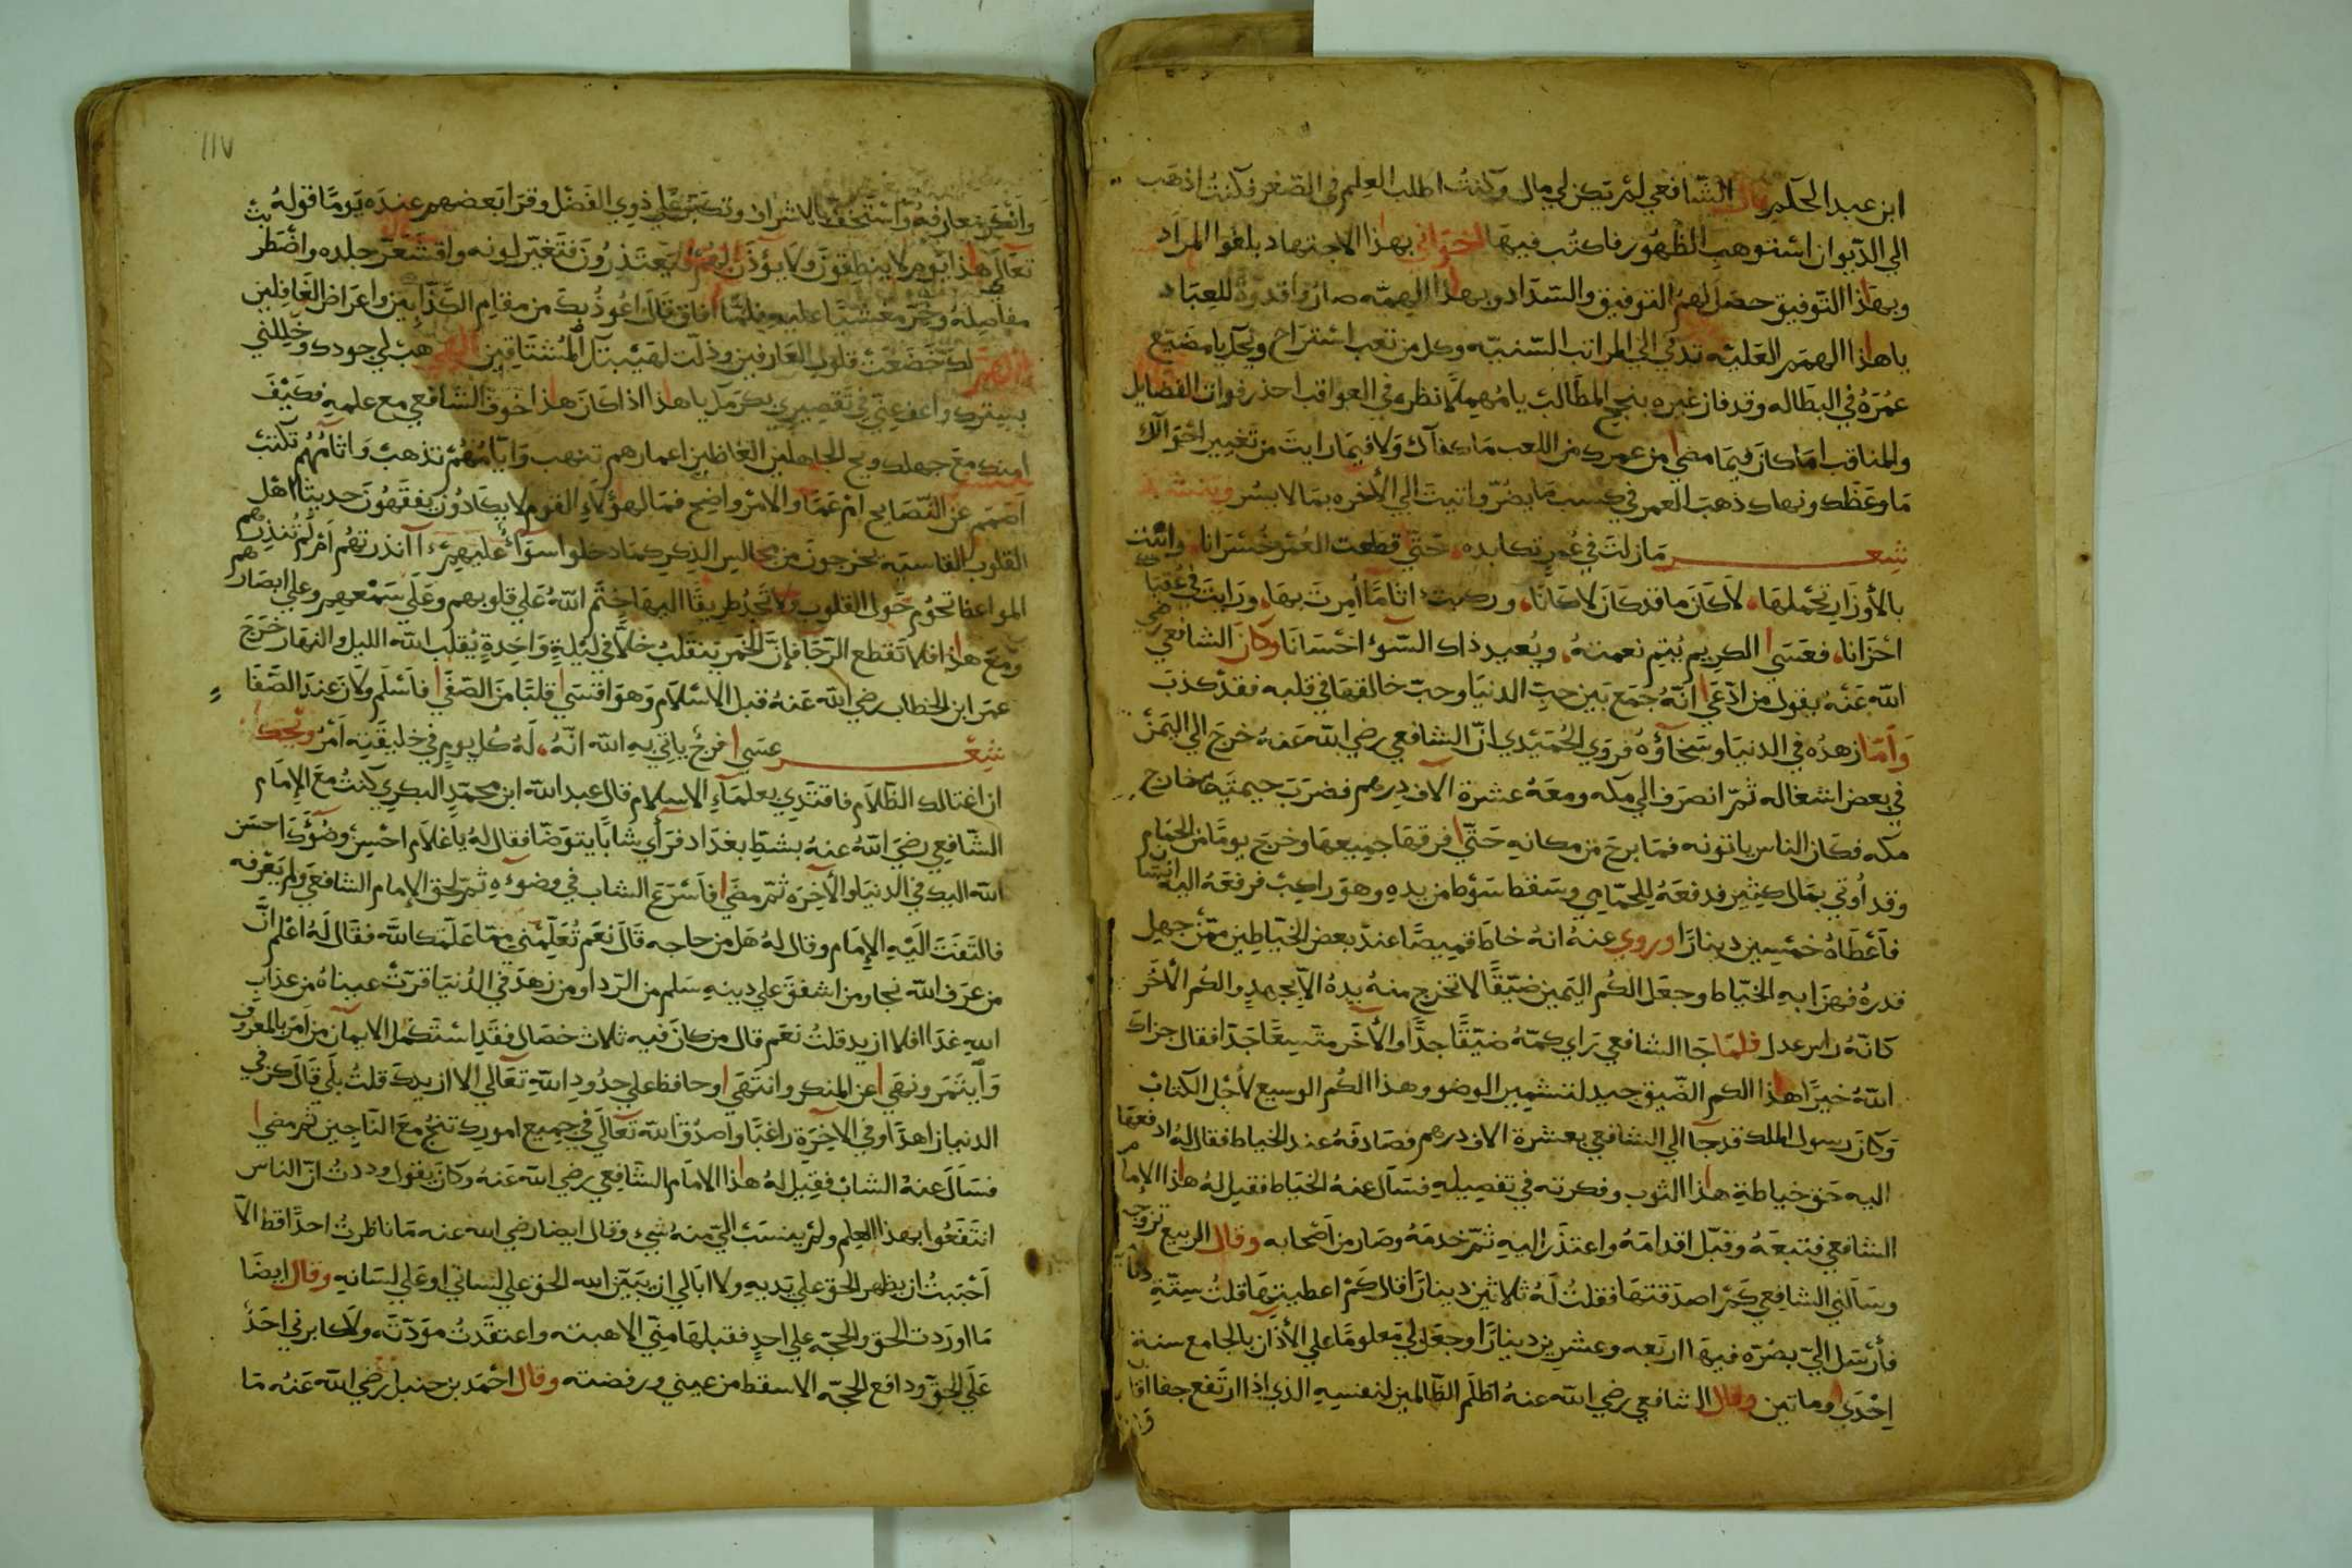 ابن عبد الحكم قال الشافعي لم يكن لي مال وكنت اطلب العلم في الصغر فكنت اذهب
الي الديوان استوهب الظهور فاكتب فيها اخواني بهذا الاجتهاد بلغوا المراد
وبهذا التوفيق حصل لهم التوفيق والسداد وبهذا الهمه صاروا قدوة للعباد
يا هذا الهمم العليه تدني الي المراتب السنيه وكل من تعب استراح ويحك يا مضيع
عمره في البطاله وقد فاز غيره بنجح المطالب يا مهملا نظره في العواقب احذر فوات الفضايل
والمناقب اما كان فيما مضي من عمرك من اللعب ما كفاك ولا فيما رايت من تغيير احوالك
ما وعظك ونهاك ذهب العمر في كسب ما يضر واتيت الي الأخره بما لا يسر وينشد
شعر ما زلت في عمر تكابده حتي قطعت العمر خسرانا واتت
بالأوزار تحملها لا كان ما قد كان لا كانا وركبت اثاما أمرت بها ورايت في عقباك
احزانا فعسي الكريم يتم نعمته ويعيد ذاك السوء احسانا وكان الشافعي رضي
الله عنه يقول من ادعي انه جمع بين حب الدنيا وحب خالقها في قلبه فقد كذب
وأما زهده في الدنيا وسخاؤه فروي الحميدي ان الشافعي رضي الله عنه خرج الي اليمن
في بعض اشغاله ثم انصرف الي مكه ومعه عشرة الاف درهم فضرب خيمته خارج
مكه فكان الناس ياتونه فما برح من مكانه حتي فرقها جميعها وخرج يوما من الحمام
وقد أوتي بمال كثير فدفعه للحمامي وسقط سوط من يده وهو راكب فرفعه اليه انسان
فأعطاه خمسين دينارا وروي عنه انه خاط قميصا عند بعض الخياطين ممن جهل
قدره فهزا به الخياط وجعل الكم اليمين ضيقا لا تخرج منه يده الا بجهد والكم الأخر
كانه راس عدل فلما جا الشافعي راي كمه ضيقا جدا والأخر متسعا جدا فقال جزاك
الله خيرا هذا الكم الضيق جيد لتشمير الوضو وهذا الكم الوسيع لأجل الكتاب
وكان رسول الملك قد جا الي الشافعي بعشرة الاف درهم فصادفه عند الخياط فقال له ادفعها
اليه حق خياطة هذا الثوب وفكرته في تفصيله فسال عنه الخياط فقيل له هذا الإمام
الشافعي فتبعه وقبل اقدامه واعتذر اليه ثم خدمه وصار من أصحابه وقال الربيع تزوجت
وسألني الشافعي كم اصدقتها فقلت له ثلاثين دينارا قال كم اعطيتها قلت ستة دنانير
فأرسل الي بصره فيها اربعه وعشرين دينارا وجعل لي معلوما علي الأذان بالجامع سنة
إحدي وماتين وقال الشافعي رضي الله عنه اظلم الظالمين لنفسه الذي اذا ارتفع جفا اقاربه
١١٧
وأنكر معارفه واستخف بالاشراف وتكبر علي ذوي الفضل وقرا بعضهم عنده يوما قوله
تعالي هذا يوم لا ينطقون ولا يؤذن لهم فيعتذرون فتغير لونه واقشعر جلده واضطربت
مفاصله وخر مغشيا عليه فلما أفاق قال اعوذ بك من مقام الكذابين واعراض الغافلين
اللهم لك خضعت قلوب العارفين وذلت لهيبتك المشتاقين الهي هب لي جودك وجللني
بسترك واعف عني في تقصيري بكرمك يا هذا اذا كان هذا خوف الشافعي مع علمه فكيف
امنك مع جهلك ويح الجاهلين الغافلين اعمارهم تنهب وايامهم تذهب واثامهم تكتب
اصمم عن النصايح ام عما والامر واضح فمال هؤلاء القوم لا يكادون يفقهون حديثا اهل
القلوب القاسيه يخرجون من مجالس الذكر كما دخلوا سواء عليهم ءانذرتهم أم لم تنذرهم
المواعظ تحوم حول القلوب ولا تجد طريقا اليها ختم الله علي قلوبهم وعلي سمعهم وعلي ابصارهم
ومع هذا فلا تقطع الرجا فإن الخمر ينقلب خلا في ليلة واحدة يقلب الله الليل والنهار خرج
عمر ابن الخطاب رضي الله عنه قبل الاسلام وهو اقسي قلبا من الصفي فأسلم ولان عند الصفا
شعر عسي فرج ياتي به الله انه له كل يوم في خليقته أمر ويحك
ان اغتالك الظلام فاقتدي بعلماء الاسلام قال عبد الله ابن محمد البكري كنت مع الإمام
الشافعي رضي الله عنه بشط بغداد فرأي شابا يتوضا فقال له يا غلام احسن وضوءك احسن
الله اليك في الدنيا والأخره ثم مضي فأسرع الشاب في وضوءه ثم لحق الإمام الشافعي ولم يعرفه
فالتفت اليه الإمام وقال له هل من حاجه قال نعم تعلمني مما علمك الله فقال له اعلم ان
من عرف الله نجا ومن اشفق علي دينه سلم من الردا ومن زهد في الدنيا قرت عيناه من عذاب
الله غدا افلا ازيدك قلت نعم قال من كان فيه ثلاث خصال فقد استكمل الايمان من أمر بالمعروف
وأيتمر ونهي عن المنكر وانتهي وحافظ علي حدود الله تعالي الا ازيدك قلت بلي قال كن في
الدنيا زاهدا وفي الاخرة راغبا واصدق الله تعالي في جميع امورك تنج مع الناجين ثم مضي
فسال عنه الشاب فقيل له هذا الامام الشافعي رضي الله عنه وكان يقول وددت ان الناس
انتفعوا بهذا العلم ولم ينسب الي منه شيء وقال ايضا رضي الله عنه ما ناظرت احدا قط الا
أحببت ان يظهر الحق علي يديه ولا ابالي ان يبين الله الحق علي لساني او علي لسانه وقال ايضا
ما اوردت الحق والحجه علي احد فقبلها مني الا هبته واعتقدت مودته ولا كابرني احد
علي الحق ودافع الحجه الا سقط من عيني ورفضته وقال احمد بن حنبل رضي الله عنه ما